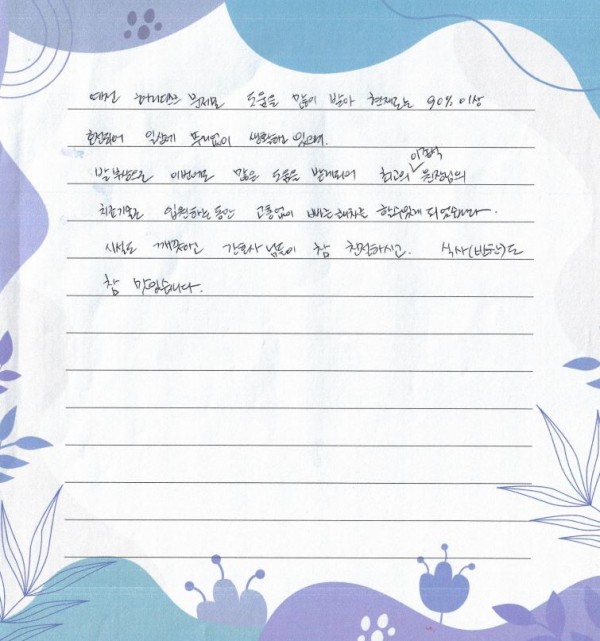 예전 허리디스크 문제로 도움을 많이 받아 현재로는 90% 이상
회전되어 일상에 무리없이 생활하고 있으며.
발 부상으로 이번에도 많은 도움을 받게되어 최고의 이준석 원장님의
치료기술로 입원하는 동안 고통없이 빠른 쾌차를 할수있게 되었습니다.
시설도 깨끗하고 간호사님들이 참 친절하시고. 식사(반찬)도
참 맛있습니다.